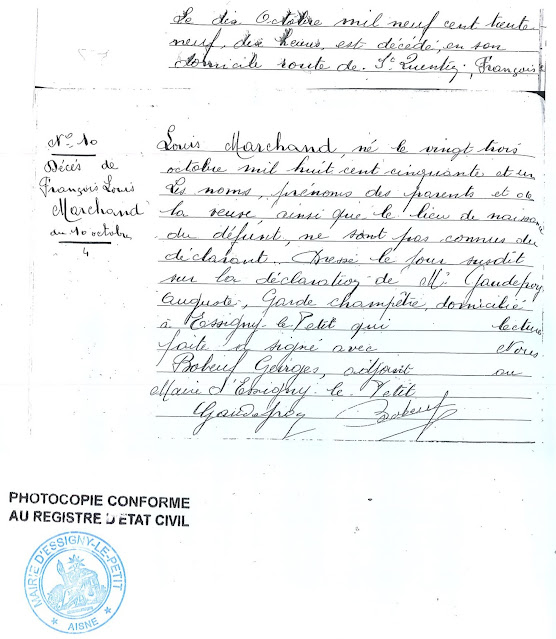 Le dix Octobre mil neuf cent trente
neuf, dix heures, est décédé, en son
domicile route de St Quentin, François
No 10
Décès de
François Louis
Marchand
du 10 octobre
4
Louis Marchand, né le vingt trois
octobre mil huit cent cinquante et un
Les noms, prénoms des parents et de
la veuve, ainsi que le lieu de naissance
du défunt, ne sont pas connus du
déclarant. Dressé le jour susdit
sur la déclaration de Mr Gaudefroy
Auguste, Garde champêtre, domicilié
à Essigny-le-Petit qui lecture
faite a signé avec Nous
Bobeuf Georges, adjoint au
Maire d'Essigny le Petit
Gaudefroy Bobeuf
PHOTOCOPIE CONFORME
AU REGISTRE D'ETAT CIVIL
MAIRIE D'ESSIGNY-LE-PETIT
AISNE